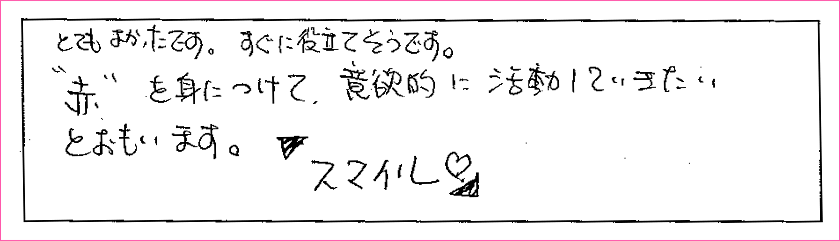 とてもよかったです。すぐに役立てそうです。
"赤"を身につけて、意欲的に活動していきたい
とおもいます。
スマイル♡